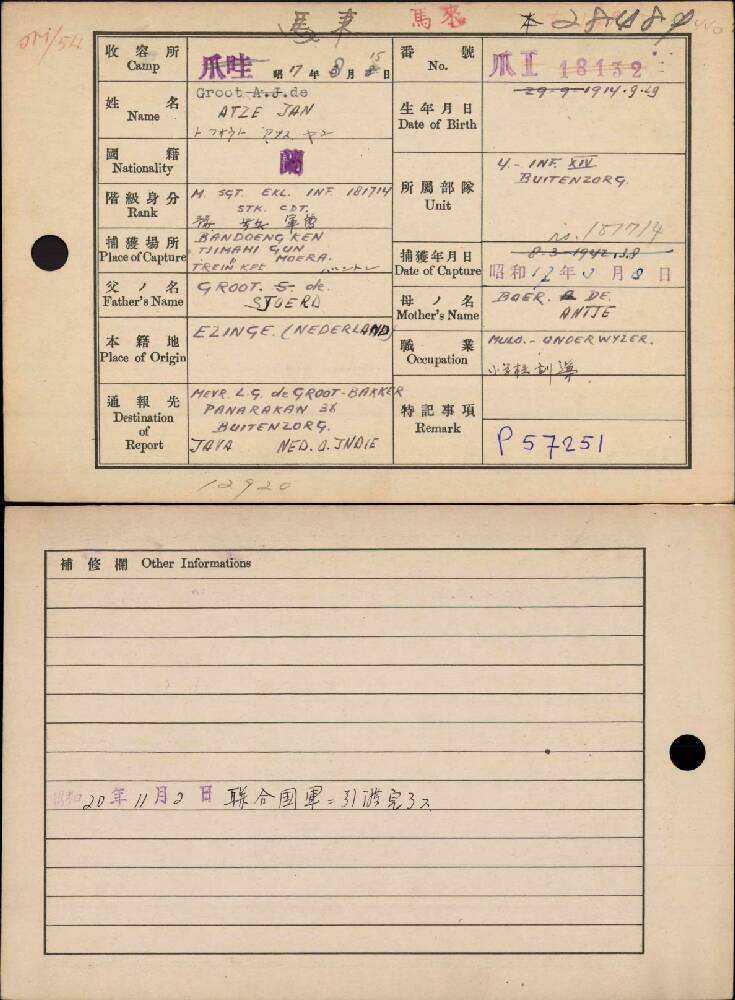 馬来
馬来
本 28489
ori/54
收容所
Camp
爪哇 昭17年8月15日
番號
No.
爪II 18132
姓名
Name
Groot A.J. de
ATZE JAN
生年月日
Date of Birth
29-9-1914.9.29
國籍
Nationality
蘭
階級身分
Rank
M. SGT. EKL. INF 181714
STK. CDT.
所属部隊
Unit
4.- INF. XIV
BUITENZORG.
捕獲場所
Place of Capture
BANDOENG KEN
TJIMAHI GUN
TREIN KEE MOERA.
バンドン
捕獲年月日
Date of Capture
8-3-1942
昭和17年3月8日
父ノ名
Father's Name
GROOT. S. de.
SJOERD
母ノ名
Mother's Name
BOER. DE.
ANTJE
本籍地
Place of Origin
EZINGE. (NEDERLAND)
職業
Occupation
MULO.- ONDERWYZER.
小学校訓導
通報先
Destination
of
Report
MEVR. L.G. de GROOT-BAKKER
PANARAKAN 36
BUITENZORG.
JAVA NED. O. INDIE
特記事項
Remark
P 57251
12920
補修欄 Other Informations
昭和20年11月2日 聯合国軍ニ引渡完了ス